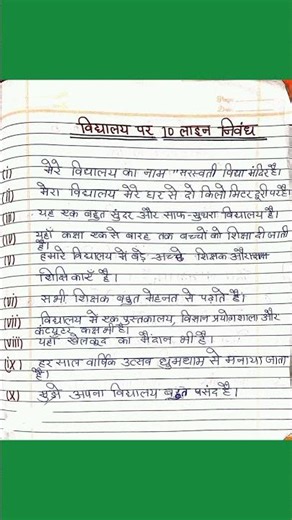 विद्यालय पर 10 लाइन निवंध
(i) मेरे विद्यालय का नाम "सरस्वती विद्या मंदिर है।
(ii) मेरा विद्यालय मेरे घर से दो किलो मिटर दूरी पर है।
(iii) यह एक बहुत सुंदर और साफ-सुथरा विद्यालय है।
(iv) यहाँ कक्षा एक से बारह तक बच्चों को शिक्षा दी जाती है।
(v) हमारे विद्यालय में बड़े अच्छे शिक्षक और
शिक्षिकाएँ है।
(vi) सभी शिक्षक बहुत मेहनत से पढ़ाते है।
(vii) विद्यालय में एक पुस्तकालय, विज्ञान प्रयोगशाला और
कंप्यूटर कक्ष भी है।
(viii) यहाँ खेलकूद का मैदान भी है।
(ix) हर साल वार्षिक उत्सव धुमधाम से मनाया जाता
है।
(x) मुझे अपना विद्यालय बहुत पसंद है।